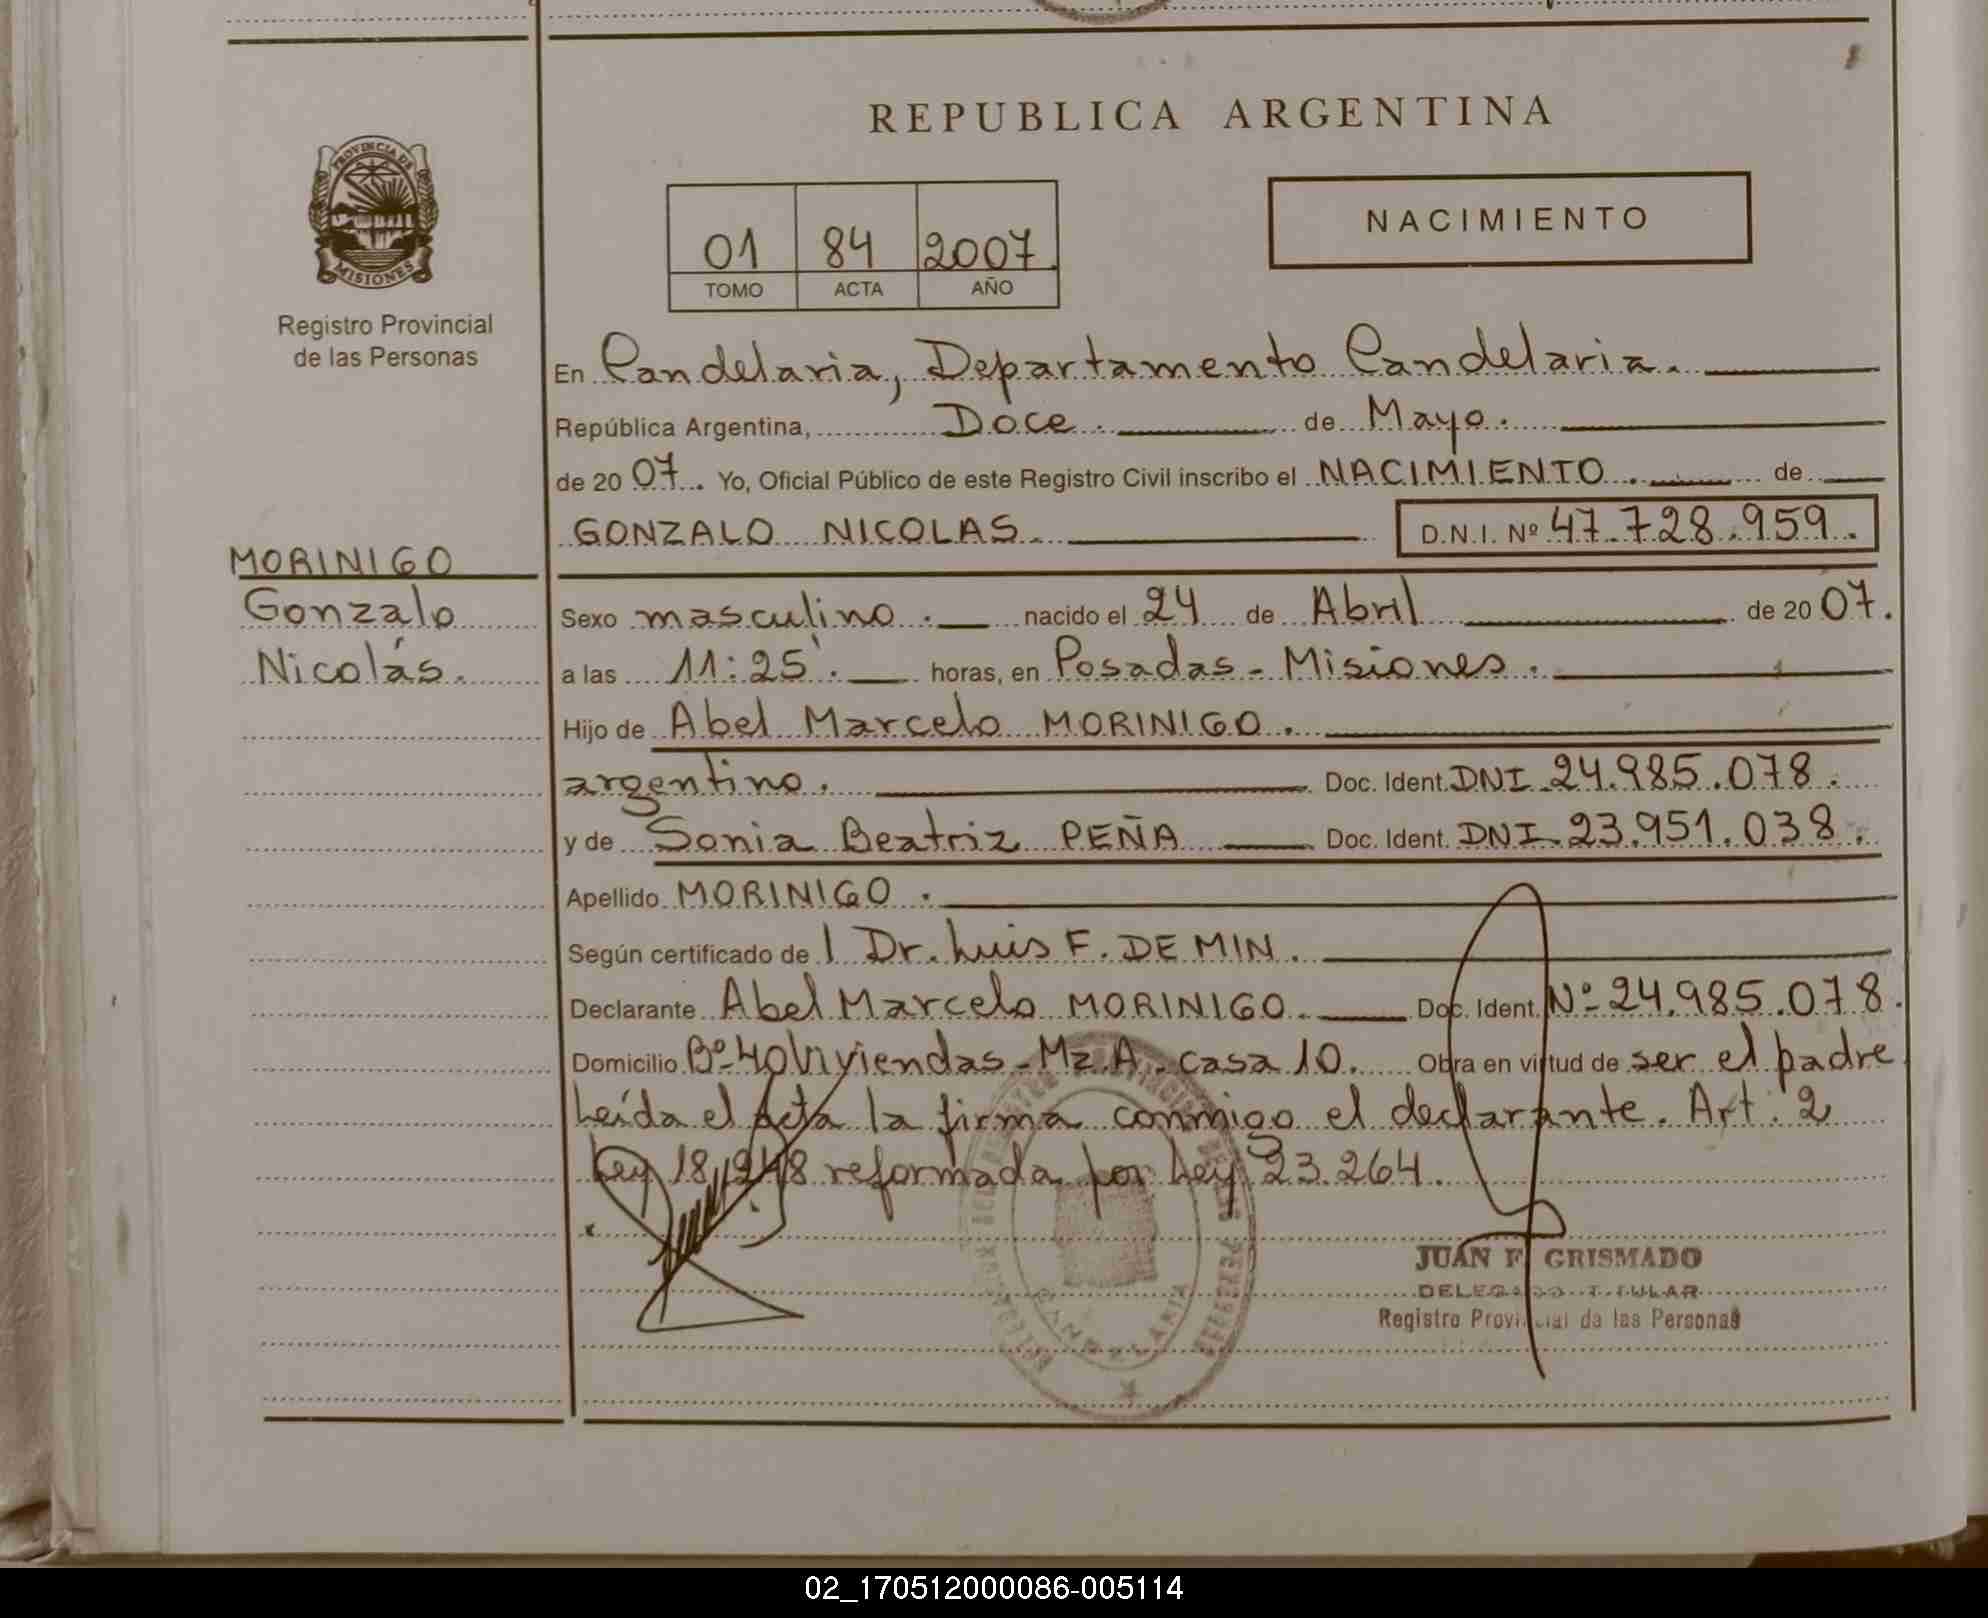 REPUBLICA ARGENTINA
PROVINCIA DE
MISIONES
Registro Provincial
de las Personas
NACIMIENTO
01 84 2007
TOMO ACTA AÑO
En Candelaria, Departamento Candelaria.
República Argentina, Doce. de Mayo.
de 2007. Yo, Oficial Público de este Registro Civil inscribo el NACIMIENTO. de
GONZALO NICOLAS. D.N.I. Nº 47.728.959.
MORINIGO
Gonzalo
Nicolás.
Sexo masculino. nacido el 24 de Abril de 2007.
a las 11:25'. horas, en Posadas - Misiones.
Hijo de Abel Marcelo MORINIGO.
argentino. Doc. Ident. DNI 24.985.078.
y de Sonia Beatriz PEÑA Doc. Ident. DNI 23.951.038.
Apellido MORINIGO.
Según certificado de l Dr. Luis F. DE MIN.
Declarante Abel Marcelo MORINIGO. Doc. Ident. Nº 24.985.078.
Domicilio Bº 40 Viviendas - Mz. A - casa 10. Obra en virtud de ser el padre
Leída el acta la firma conmigo el declarante. Art. 2
Ley 18.248 reformada por Ley 23.264.
JUAN F. GRISMADO
DELEGADO TITULAR
Registro Provincial de las Personas
CANDELARIA
02_170512000086-005114